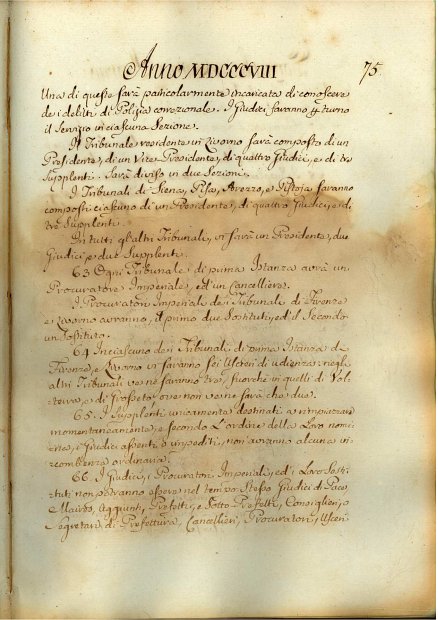 Anno MDCCCVIII 75.
Una di queste sarà particolarmente incaricata di conoscere
dei delitti di Polizia correzionale. I Giudici saranno p. turno
il Servizio in ciascuna Sezione.
Il Tribunale residente in Livorno sarà composto di un
Presidente, di un Vice-Presidente, di quattro Giudici, e di tre
Supplenti. Sarà diviso in due Sezioni.
I Tribunali di Siena, Pisa, Arezzo, e Pistoja saranno
composti ciascuno di un Presidente, di quattro Giudici, e di
tre Supplenti.
In tutti gl'altri Tribunali, vi sarà un Presidente, due
Giudici e due Supplenti.
63. Ogni Tribunale di prima Istanza avrà un
Procuratore Imperiale, ed un Cancelliere.
I Procuratori Imperiale dei Tribunale di Firenze
e Livorno avranno, il primo due Sostituti, ed il Secondo
un Sostituto.
64. In ciascuno dei Tribunali di prima Istanza di
Firenze, e Livorno vi saranno sei Uscieri di udienza: negli
altri Tribunali ve ne saranno tre, fuorchè in quelli di Vol-
terra, e di Grosseto, ove non ve ne sarà che due.
65. I Supplenti unicamente destinati a rimpiazzare
momentaneamente, e secondo l'ordine della Loro nomi-
na, i Giudici assenti o impediti, non avranno alcuna in-
combenza ordinaria.
66. I Giudici, i Procuratori Imperiali, ed i Loro Sosti-
tuti non potranno essere nel tempo stesso Giudici di Pace,
Maires, Aggiunti, Prefetti, e Sotto Prefetti, Consiglieri, o
Segretari di Prefettura, Cancellieri, Procuratori, Uscieri